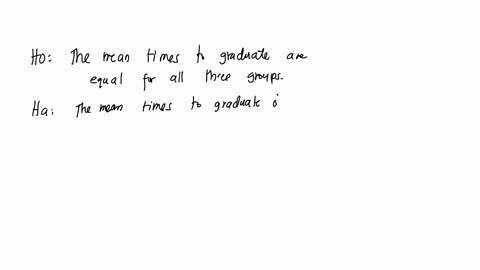 Ho: The mean times to graduate are
equal for all three groups.
Ha: The mean times to graduate